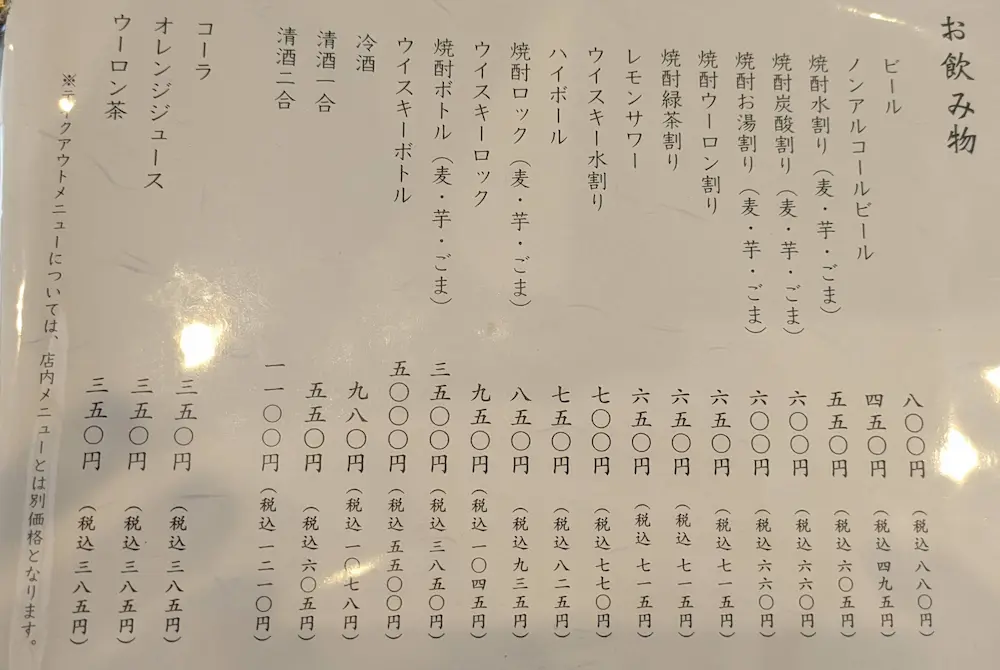 お飲み物
ビール 八〇〇円 （税込 八八〇円）
ノンアルコールビール 四五〇円 （税込 四九五円）
焼酎水割り（麦・芋・ごま） 五五〇円 （税込 六〇五円）
焼酎炭酸割り（麦・芋・ごま） 六〇〇円 （税込 六六〇円）
焼酎お湯割り（麦・芋・ごま） 六〇〇円 （税込 六六〇円）
焼酎ウーロン割り 六五〇円 （税込 七一五円）
焼酎緑茶割り 六五〇円 （税込 七一五円）
レモンサワー 六五〇円 （税込 七一五円）
ウイスキー水割り 七〇〇円 （税込 七七〇円）
ハイボール 七五〇円 （税込 八二五円）
焼酎ロック（麦・芋・ごま） 八五〇円 （税込 九三五円）
ウイスキーロック 九五〇円 （税込 一〇四五円）
焼酎ボトル（麦・芋・ごま） 三五〇〇円 （税込 三八五〇円）
ウイスキーボトル 五〇〇〇円 （税込 五五〇〇円）
冷酒 九八〇円 （税込 一〇七八円）
清酒一合 五五〇円 （税込 六〇五円）
清酒二合 一一〇〇円 （税込 一二一〇円）
コーラ 三五〇円 （税込 三八五円）
オレンジジュース 三五〇円 （税込 三八五円）
ウーロン茶 三五〇円 （税込 三八五円）
※テイクアウトメニューについては、店内メニューとは別価格となります。